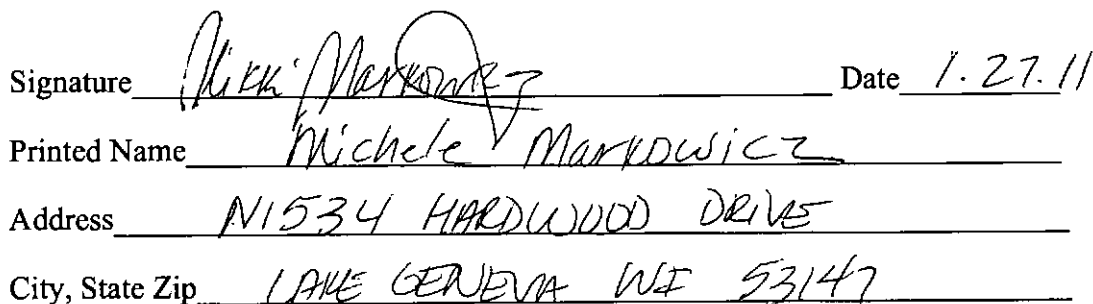 Signature Nikki Markowicz Date 1.27.11
Printed Name Michele Markowicz
Address N1534 HARDWOOD DRIVE
City, State Zip LAKE GENEVA WI 53147